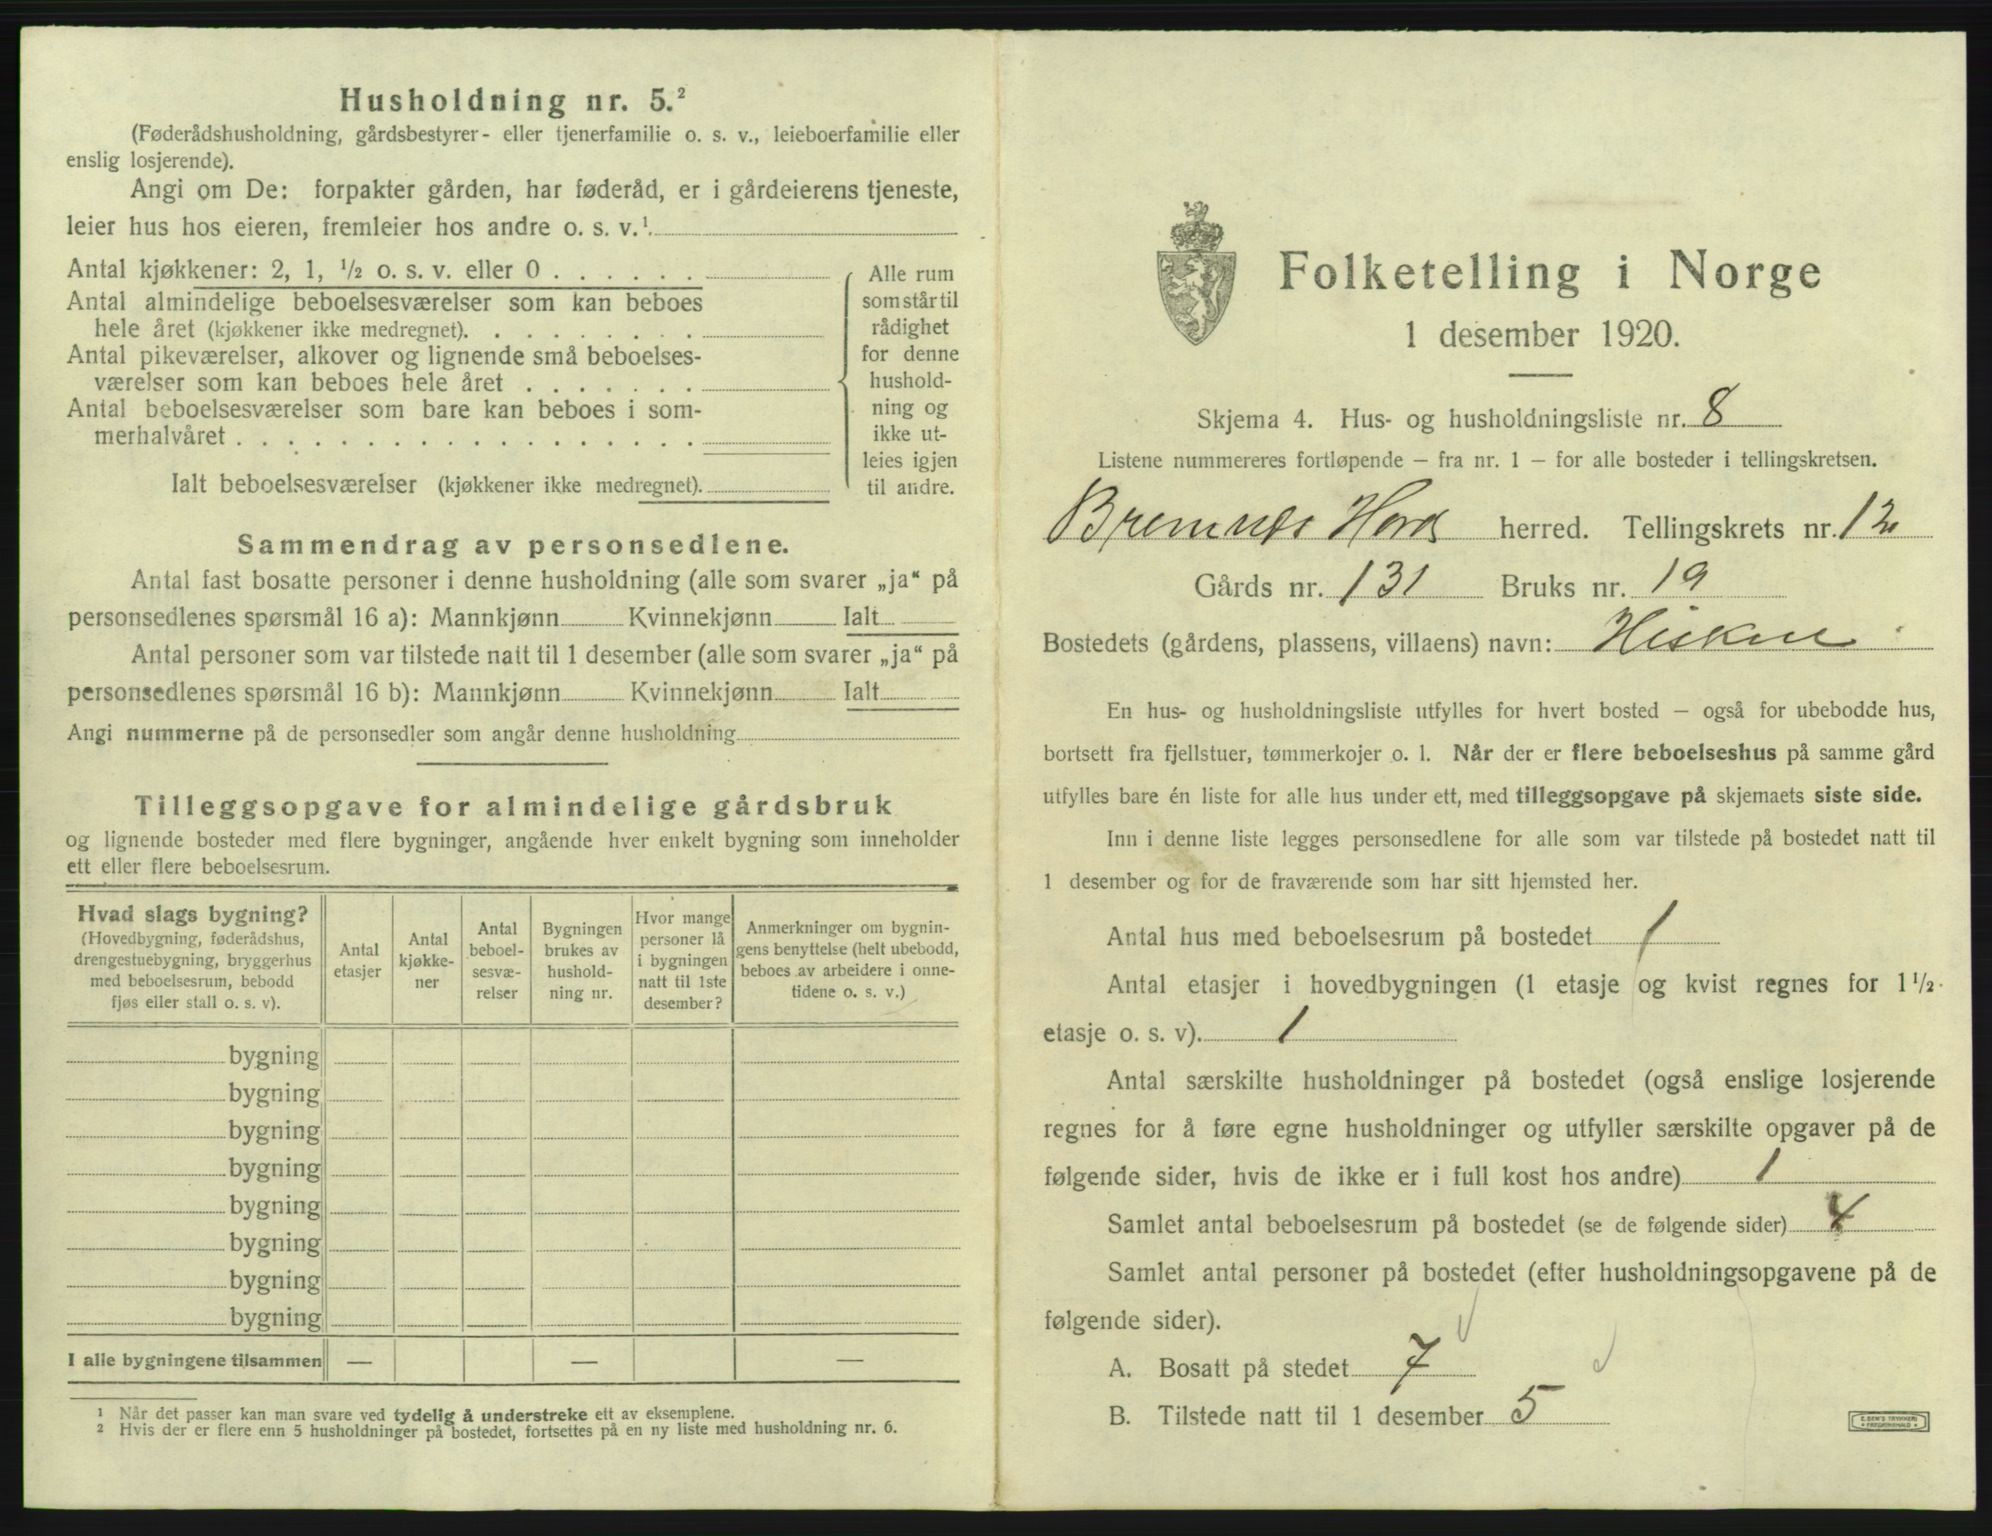 Husholdning nr. 5.²
(Føderådshusholdning, gårdsbestyrer- eller tjenerfamilie o. s. v., leieboerfamilie eller
enslig losjerende).
Angi om De: forpakter gården, har føderåd, er i gårdeierens tjeneste,
leier hus hos eieren, fremleier hos andre o. s. v.¹.
Antal kjøkkener: 2, 1, ½ o. s. v. eller 0 . . . . . .
Antal almindelige beboelsesværelser som kan beboes
hele året (kjøkkener ikke medregnet). . . . . . . . .
Antal pikeværelser, alkover og lignende små beboelses-
værelser som kan beboes hele året . . . . . . .
Antal beboelsesværelser som bare kan beboes i som-
merhalvåret . . . . . . . . . . . . . . . . . .
Ialt beboelsesværelser (kjøkkener ikke medregnet).
Alle rum
som står til
rådighet
for denne
hushold-
ning og
ikke ut-
leies igjen
til andre.
Sammendrag av personsedlene.
Antal fast bosatte personer i denne husholdning (alle som svarer „ja“ på
personsedlenes spørsmål 16 a): Mannkjønn Kvinnekjønn Ialt
Antal personer som var tilstede natt til 1 desember (alle som svarer „ja“ på
personsedlenes spørsmål 16 b): Mannkjønn Kvinnekjønn Ialt
Angi nummerne på de personsedler som angår denne husholdning
Tilleggsopgave for almindelige gårdsbruk
og lignende bosteder med flere bygninger, angående hver enkelt bygning som inneholder
ett eller flere beboelsesrum.
Hvad slags bygning?
(Hovedbygning, føderådshus,
drengestuebygning, bryggerhus
med beboelsesrum, bebodd
fjøs eller stall o. s. v).
Antal
etasjer
Antal
kjøkke-
ner
Antal
beboel-
sesvæ-
relser
Bygningen
brukes av
hushold-
ning nr.
Hvor mange
personer lå
i bygningen
natt til 1ste
desember?
Anmerkninger om bygnin-
gens benyttelse (helt ubebodd,
beboes av arbeidere i onne-
tidene o. s. v.)
bygning
bygning
bygning
bygning
bygning
bygning
bygning
bygning
I alle bygningene tilsammen — — —
¹ Når det passer kan man svare ved tydelig å understreke ett av eksemplene.
² Hvis der er flere enn 5 husholdninger på bostedet, fortsettes på en ny liste med husholdning nr. 6.
Folketelling i Norge
1 desember 1920.
Skjema 4. Hus- og husholdningsliste nr. 8
Listene nummereres fortløpende — fra nr. 1 — for alle bosteder i tellingskretsen.
Bremnes Hord herred. Tellingskrets nr. 12
Gårds nr. 131 Bruks nr. 19
Bostedets (gårdens, plassens, villaens) navn:
En hus- og husholdningsliste utfylles for hvert bosted — også for ubebodde hus,
bortsett fra fjellstuer, tømmerkojer o. l. Når der er flere beboelseshus på samme gård
utfylles bare én liste for alle hus under ett, med tilleggsopgave på skjemaets siste side.
Inn i denne liste legges personsedlene for alle som var tilstede på bostedet natt til
1 desember og for de fraværende som har sitt hjemsted her.
Antal hus med beboelsesrum på bostedet 1
Antal etasjer i hovedbygningen (1 etasje og kvist regnes for 1½
etasje o. s. v). 1
Antal særskilte husholdninger på bostedet (også enslige losjerende
regnes for å føre egne husholdninger og utfyller særskilte opgaver på de
følgende sider, hvis de ikke er i full kost hos andre) 1
Samlet antal beboelsesrum på bostedet (se de følgende sider) 4
Samlet antal personer på bostedet (efter husholdningsopgavene på de
følgende sider).
A. Bosatt på stedet 7
B. Tilstede natt til 1 desember 5